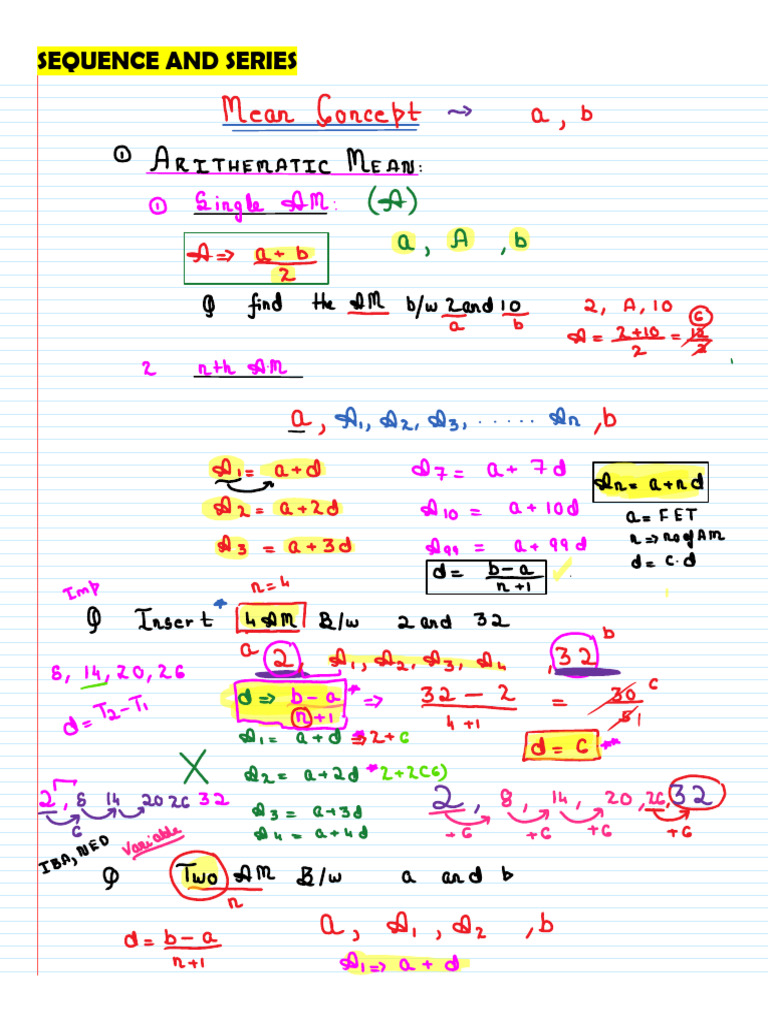 SEQUENCE AND SERIES
Mean Concept → a, b
① ARITHEMATIC MEAN:
① Single AM: (A)
A ⇒ a + b / 2
a, A, b
Q find the AM b/w 2 and 10
a b
2, A, 10
A = 2+10 / 2 = 12 / 2 6
2 nth A.M
a, A1, A2, A3, ...... An, b
A1 = a+d
A2 = a+2d
A3 = a+3d
A7 = a+ 7d
A10 = a+10d
A99 = a+99d
An = a+nd
a = FET
n ⇒ no of AM
d = c.d
d = b-a / n+1
n=4
Imp
Q Insert 4 AM B/w 2 and 32
a 2, A1, A2, A3, A4, 32 b
8, 14, 20, 26
d = T2-T1
d ⇒ b-a / n+1 ⇒ 32-2 / 4+1 = 30 / 5 6 1
d = 6
A1 = a+d ⇒ 2+6
A2 = a+2d 2+2(6)
A3 = a+3d
A4 = a+4d
2, 8 14 20 26 32
6
2, 8, 14, 20, 26, 32
+6 +6 +6 +6
IBA, NED
Variable
Q Two AM B/w a and b
n
d = b-a / n+1
a, A1, A2, b
A1 ⇒ a+d